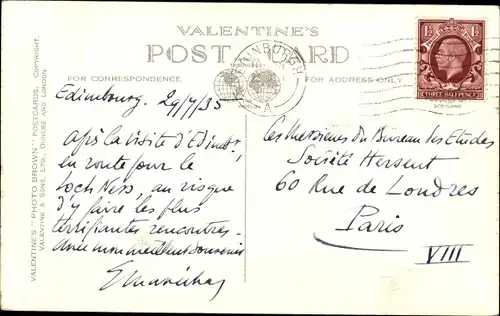 VALENTINE'S
POST CARD
FOR CORRESPONDENCE
FOR ADDRESS ONLY
EDINBURGH
A
1½ 1½
THREE HALFPENCE
SCOTLAND
VALENTINE'S "PHOTO BROWN" POSTCARDS. COPYRIGHT.
VALENTINE & SONS, LTD., DUNDEE AND LONDON.
Edimbourg. 29/7/35
Après la visite d'Edimb,
en route pour le
Loch Ness, au risque
d'y faire les plus
terrifiantes rencontres.
meilleurs souvenirs
Messieurs du Bureau des Etudes
Société Hersent
60 Rue de Londres
Paris
VIII